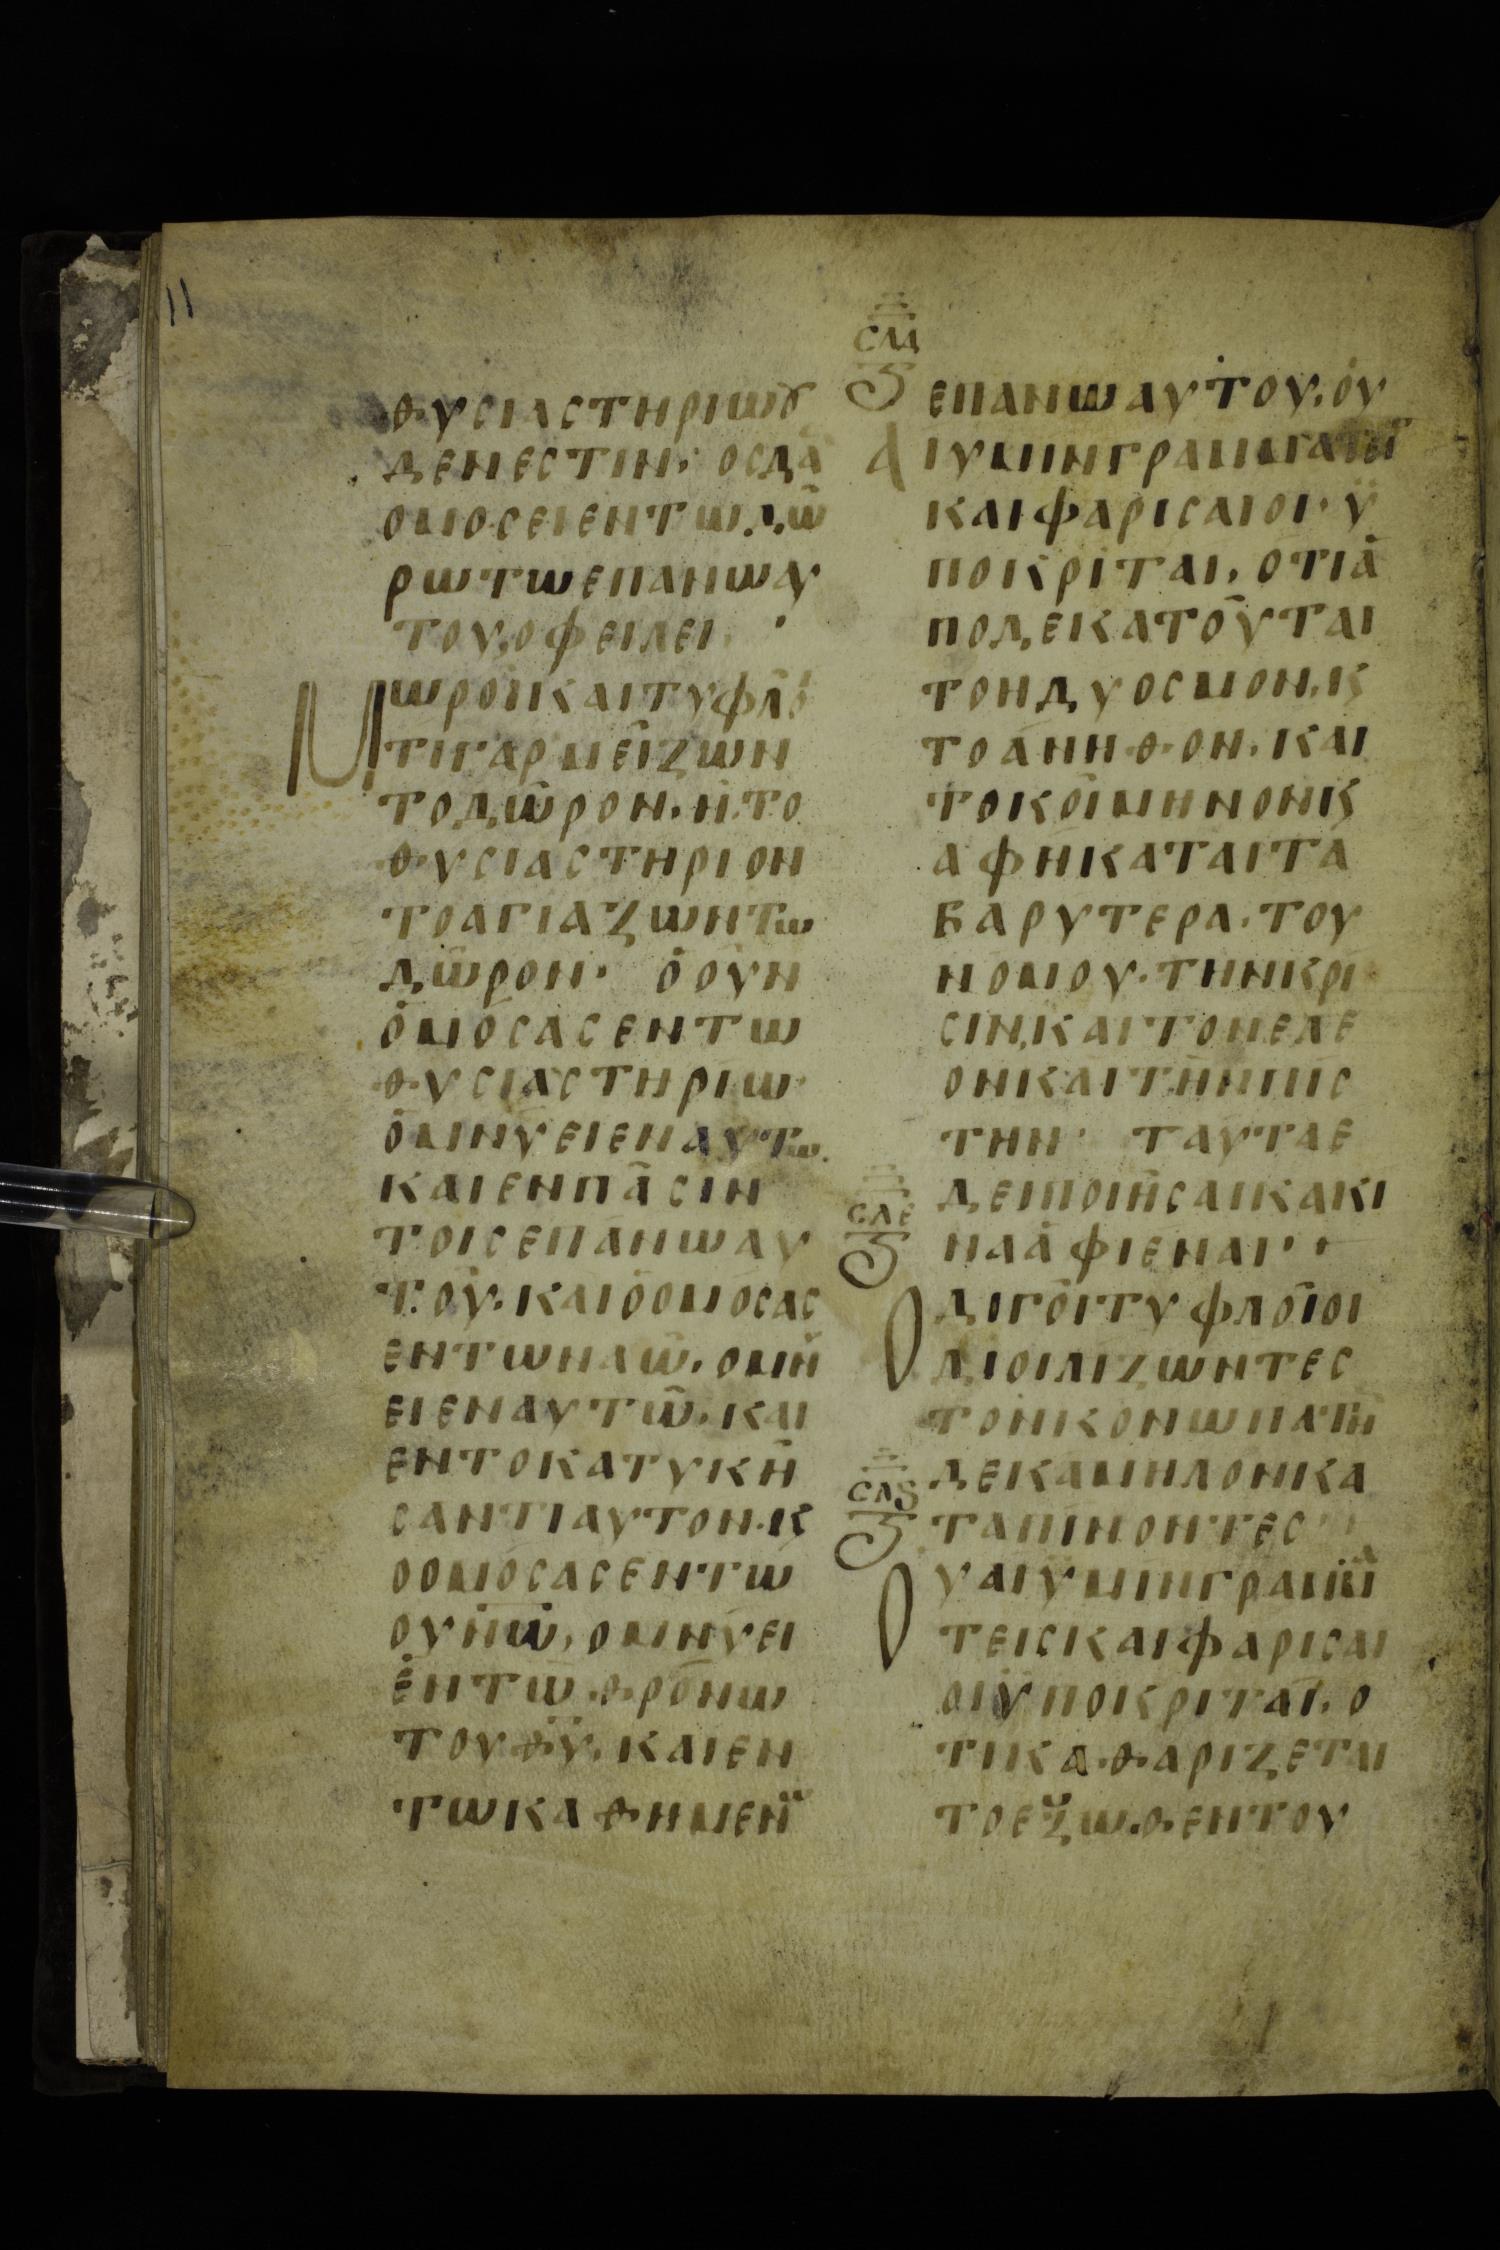 11
θυσιαστηριωȣ
δενεστιν· οσδα̅
ομοσειεντωδω̅
ρωτωεπανωαυ
του,οφειλει·
μωροικαιτυφλο
τιγαρμειζων
τοδωρον·ητο
θυσιαστηριον
τοαγιαζωντω
δωρον· οουν
ομοσασεντω
θυσιαστηριω
ομηνυειεναυτω.
καιενπασιν
τοισεπανωαυ
του·καιοομοσας
εντωναω·ομν
ειεναυτω·και
εντοκατυκη
σαντιαυτον·κ
οομοσασεντω
ουνω,ομηνυει
εντωθρονω
τουθ̅υ̅·καιεν
τωκαθημεν
σλδ
ζ
επανωαυτου·ου
αιυμινγραμματει
καιφαρισαιοι·ϋ
ποκριται,οτια
ποδεκατουται
τονδυοσμον,κ
τοανηθον·και
τοκοιμηνονκ
αφηκαταιτα
βαρυτερα·του
νομου·τηνκρι
σιν,καιτονελε
ονκαιτηνπις
την· ταυταε
δειποιησαικακι
σλε
ζ
νααφιεναι··
οδιγοιτυφλοιοι
διοιλιζωντες
τονκονωπατη
δεκαμηλονκα
σλϛ
ζ
ταπινοντες
ουαιϋμινγραμμα
τεισκαιφαρισαι
οιϋποκριται,ο
τικαθαριζεται
τοεξωθεντου